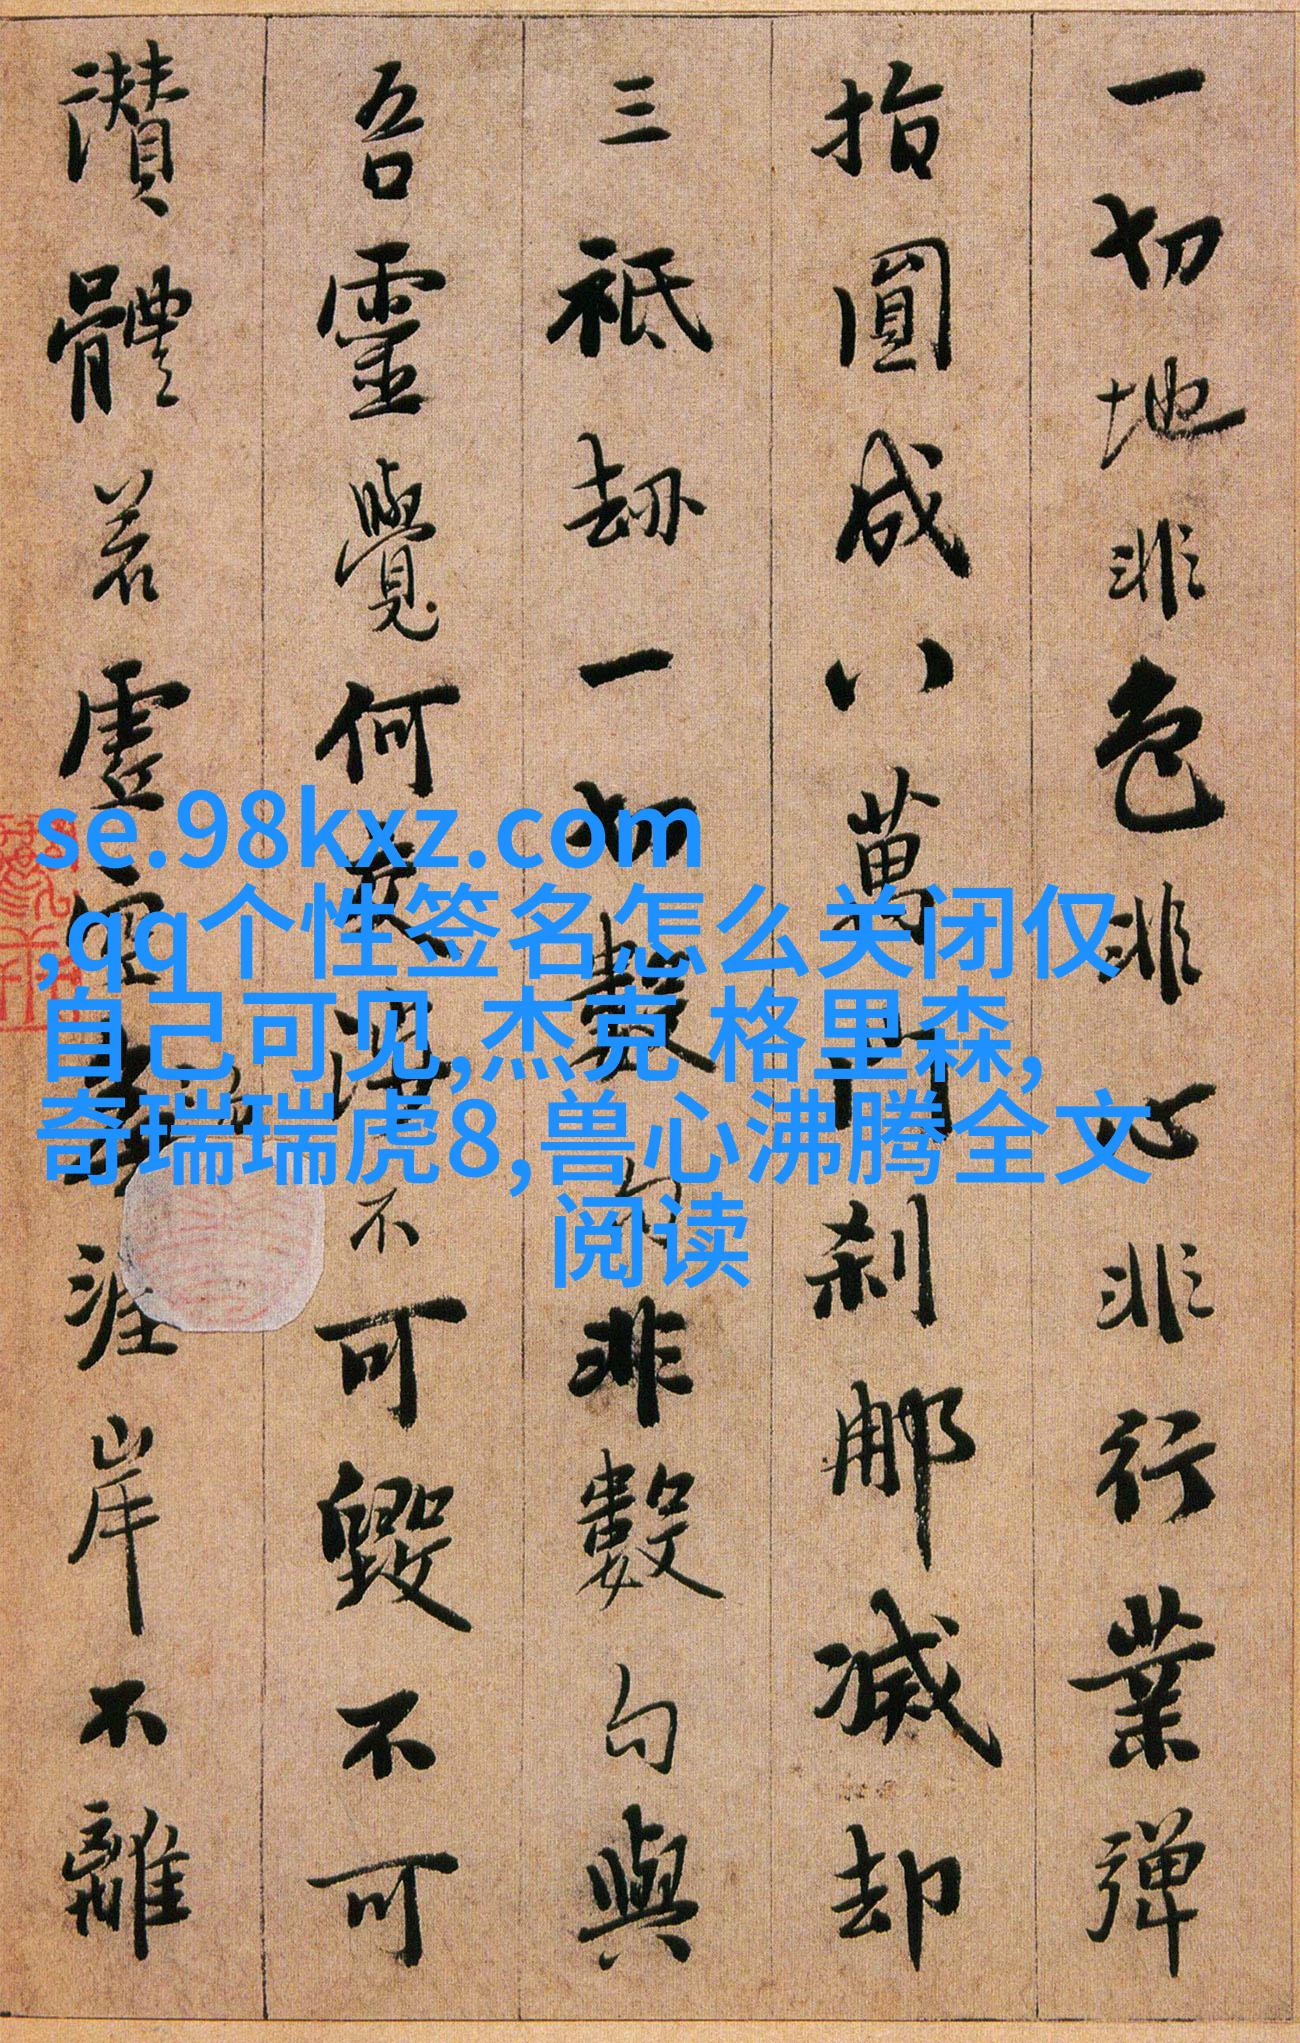 一切地非色非心非行業彈
指圓成八萬門刹那滅却
三祇劫一切數句非數句與
吾靈覺何交涉不可毀不可
讃體若虛空涯岸不離
se.98kxz.com
,qq个性签名怎么关闭仅
自己可见,杰克 格里森,
奇瑞瑞虎8,兽心沸腾全文
阅读